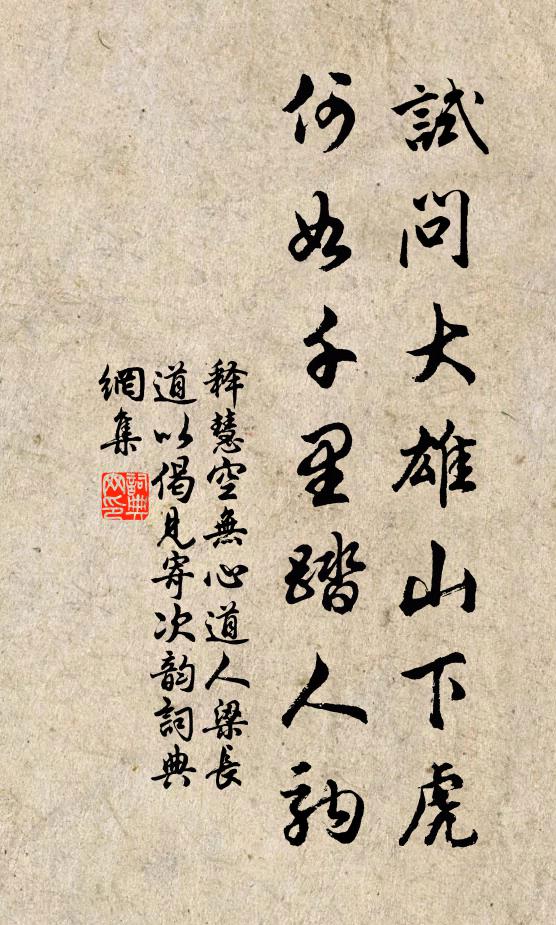 試問大雄山下虎
何如千里踏人駒
释慧空無心道人梁長
道以偈見寄次韵詞典
網集
詞典
网印